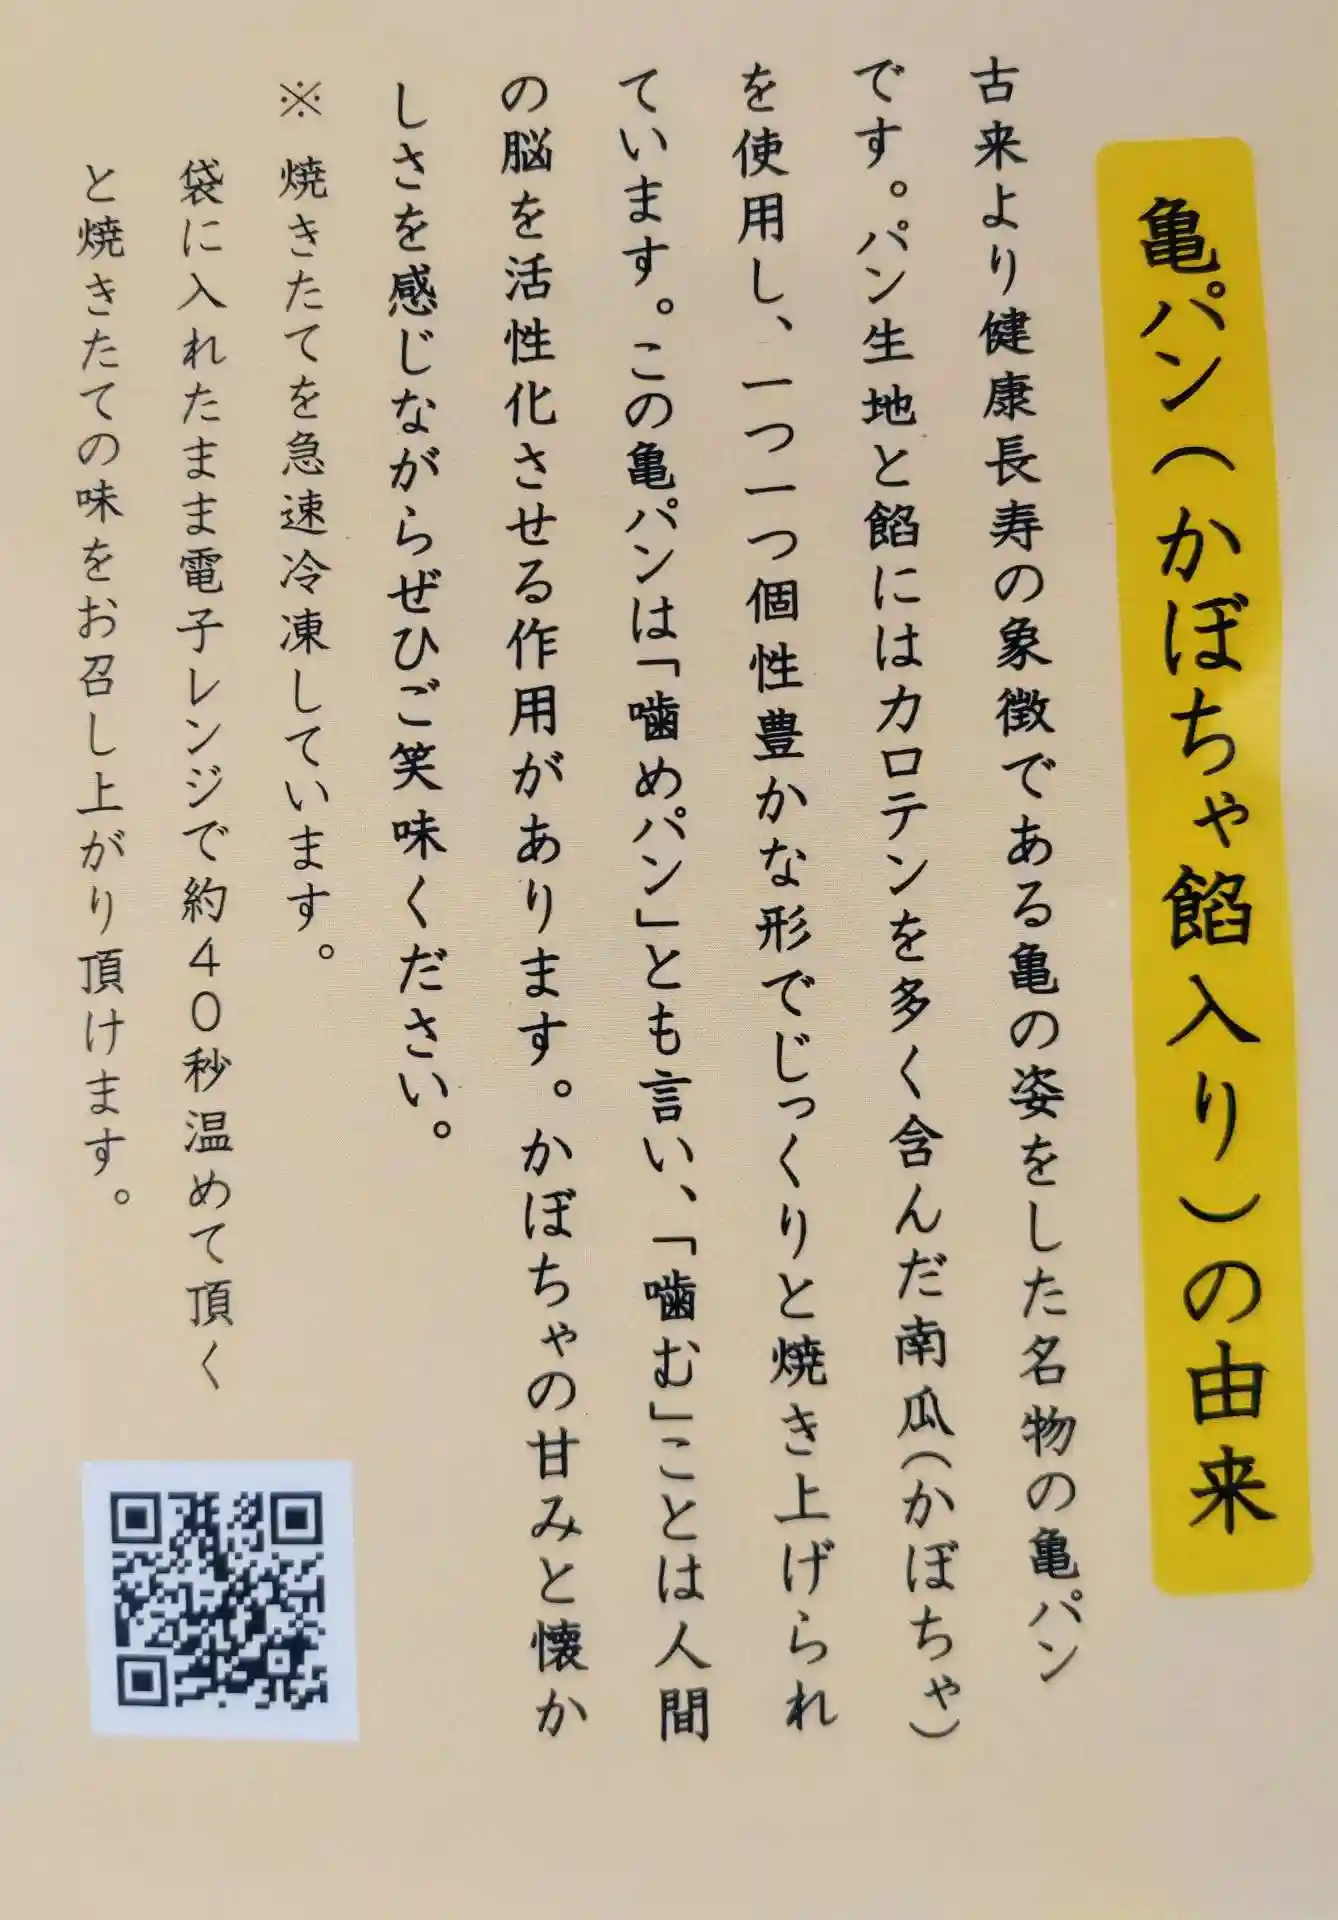 亀パン（かぼちゃ餡入り）の由来
古来より健康長寿の象徴である亀の姿をした名物の亀パン
です。パン生地と餡にはカロテンを多く含んだ南瓜（かぼちゃ）
を使用し、一つ一つ個性豊かな形でじっくりと焼き上げられ
ています。この亀パンは「噛めパン」とも言い、「噛む」ことは人間
の脳を活性化させる作用があります。かぼちゃの甘みと懐か
しさを感じながらぜひご笑味ください。
※ 焼きたてを急速冷凍しています。
袋に入れたまま電子レンジで約４０秒温めて頂く
と焼きたての味をお召し上がり頂けます。